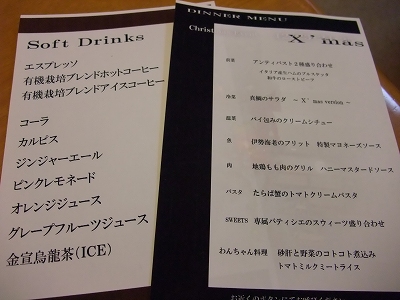 Soft Drinks
エスプレッソ
有機栽培ブレンドホットコーヒー
有機栽培ブレンドアイスコーヒー
コーラ
カルピス
ジンジャーエール
ピンクレモネード
オレンジジュース
グレープフルーツジュース
金宣烏龍茶(ICE)
DINNER MENU
Christ
X’mas
前菜 アンティパスト2種盛り合わせ
イタリア産生ハムのブルスケッタ
和牛のローストビーフ
冷菜 真鯛のサラダ ~ X’mas version ~
温菜 パイ包みのクリームシチュー
魚 伊勢海老のフリット 特製マヨネーズソース
肉 地鶏もも肉のグリル ハニーマスタードソース
パスタ たらば蟹のトマトクリームパスタ
SWEETS 専属パティシエのスウィーツ盛り合わせ
わんちゃん料理 砂肝と野菜のコトコト煮込み
トマトミルクミートライス